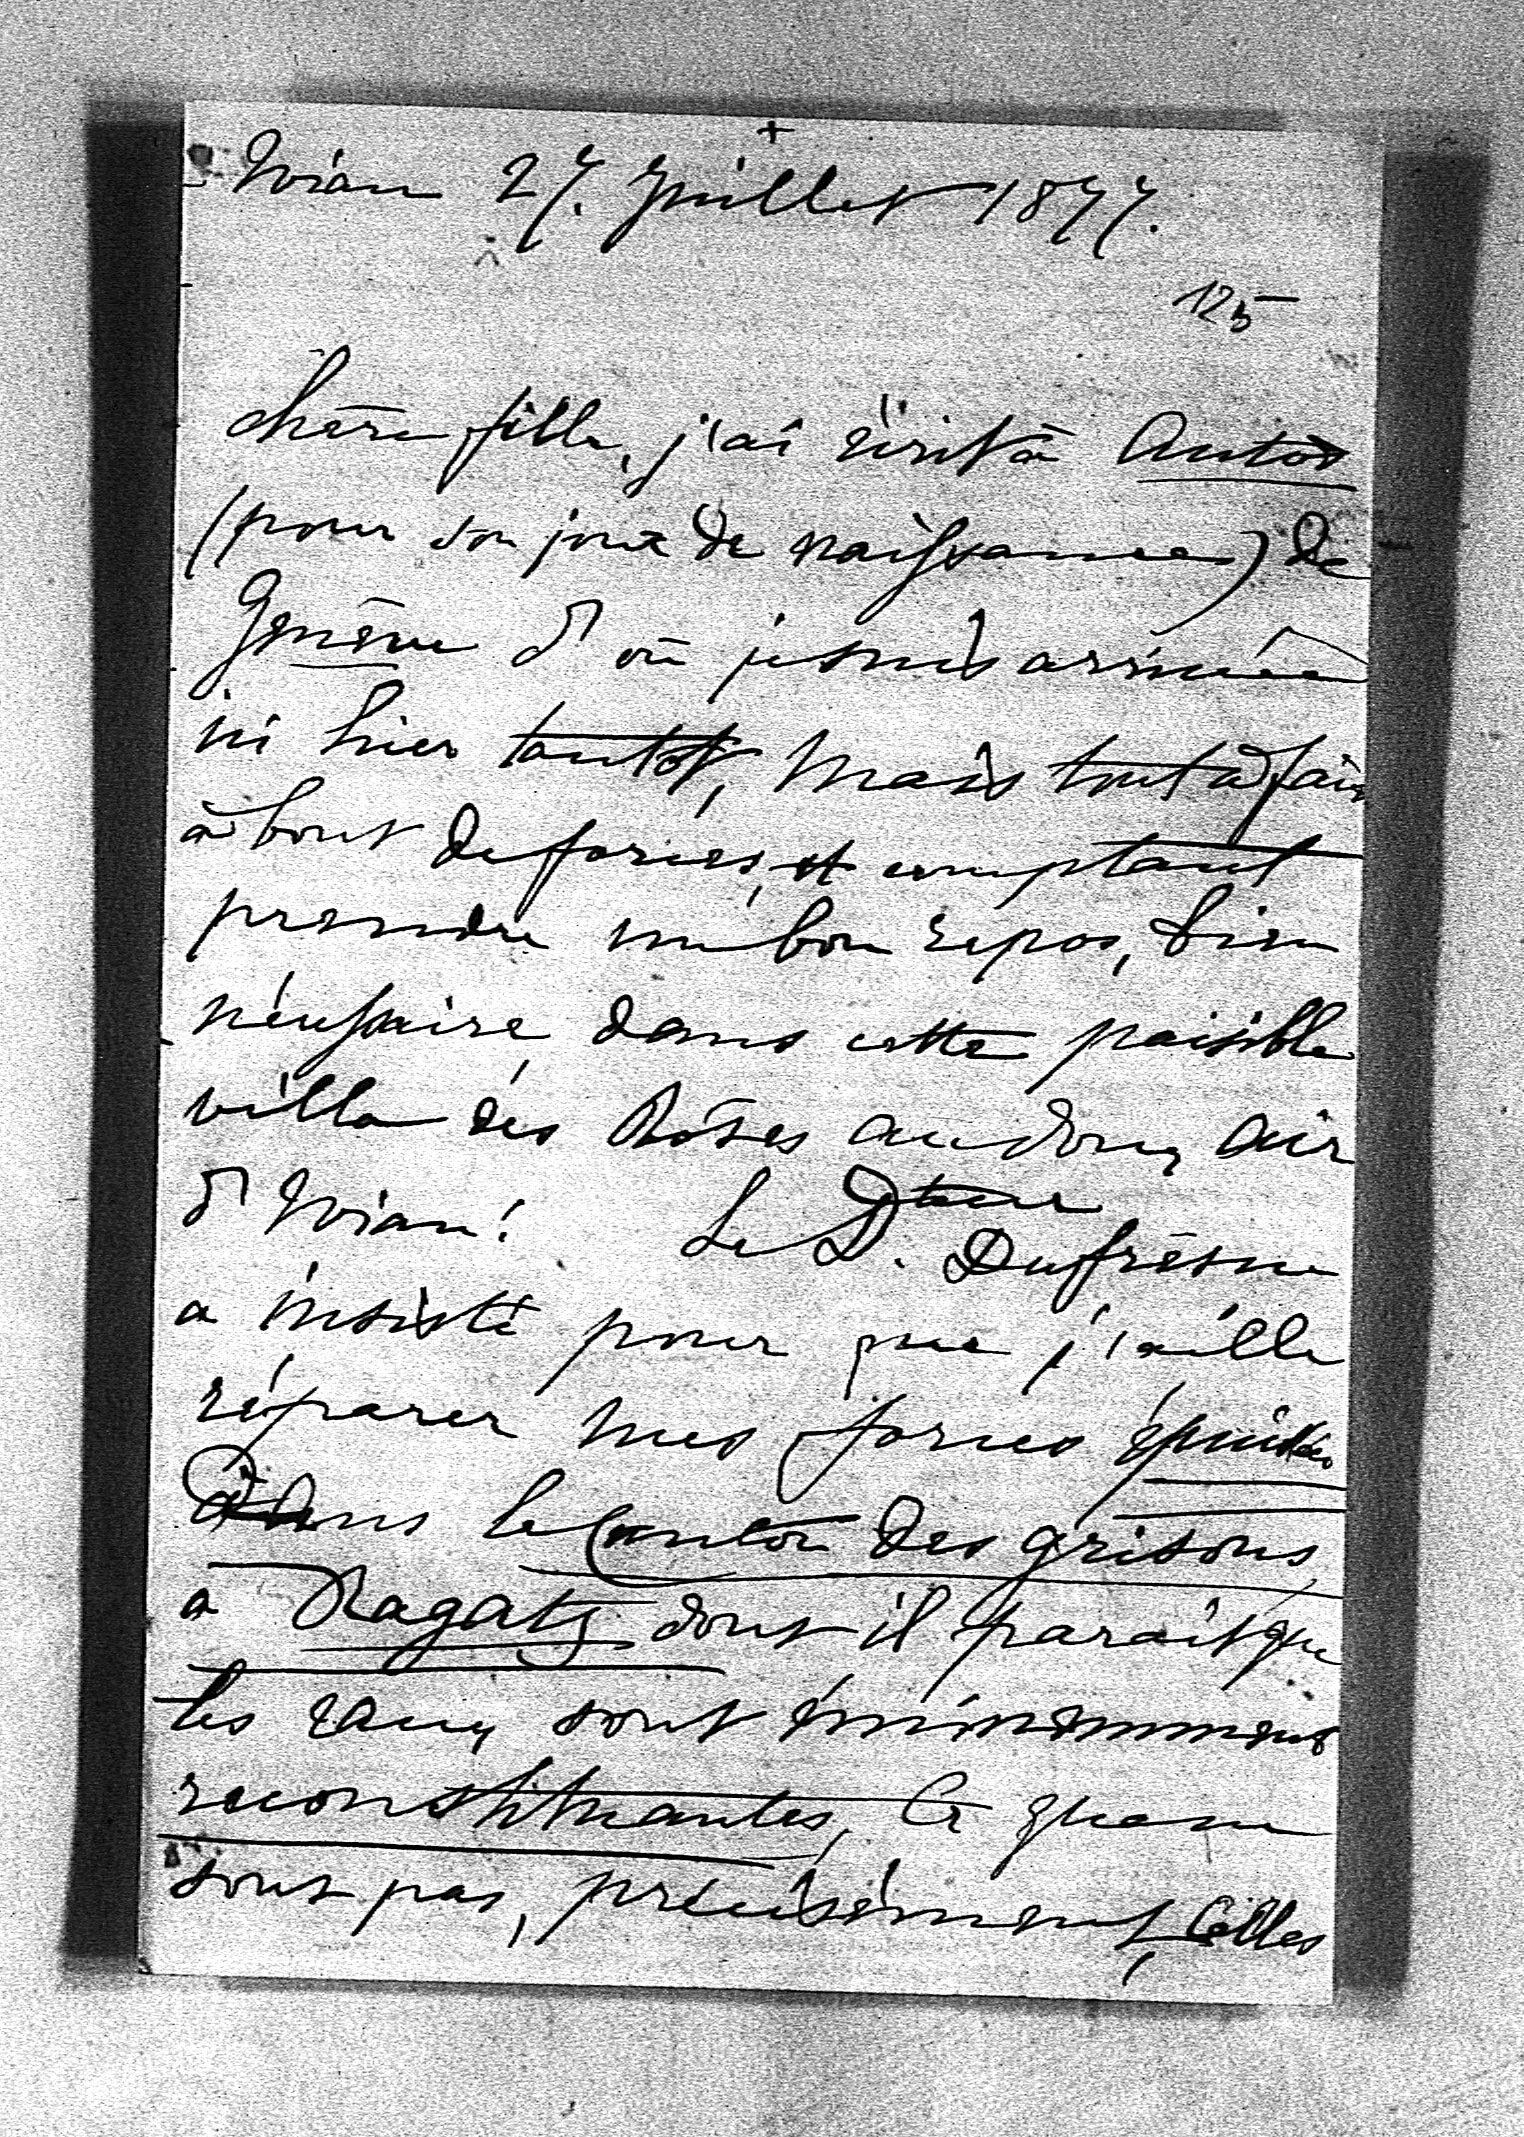 +
Evian 27. Juillet 1877.
125
chère fille, j'ai écrit à Antos
(pour son jour de naissance) de
Genève d'où je suis arrivée
ici hier tantôt, mais tout à fait
à bout de forces, et comptant
prendre un bon repos, bien
nécessaire, dans cette paisible
villa des Roses au doux air
d'Evian! Le Dteur
D. Dufresne
a insisté pour que j'aille
réparer mes forces épuisées
dans le Canton des grisons
a Ragatz dont il parait que
les eaux sont éminemment
reconstituantes, Ce que ne
sont pas, précisément, Celles